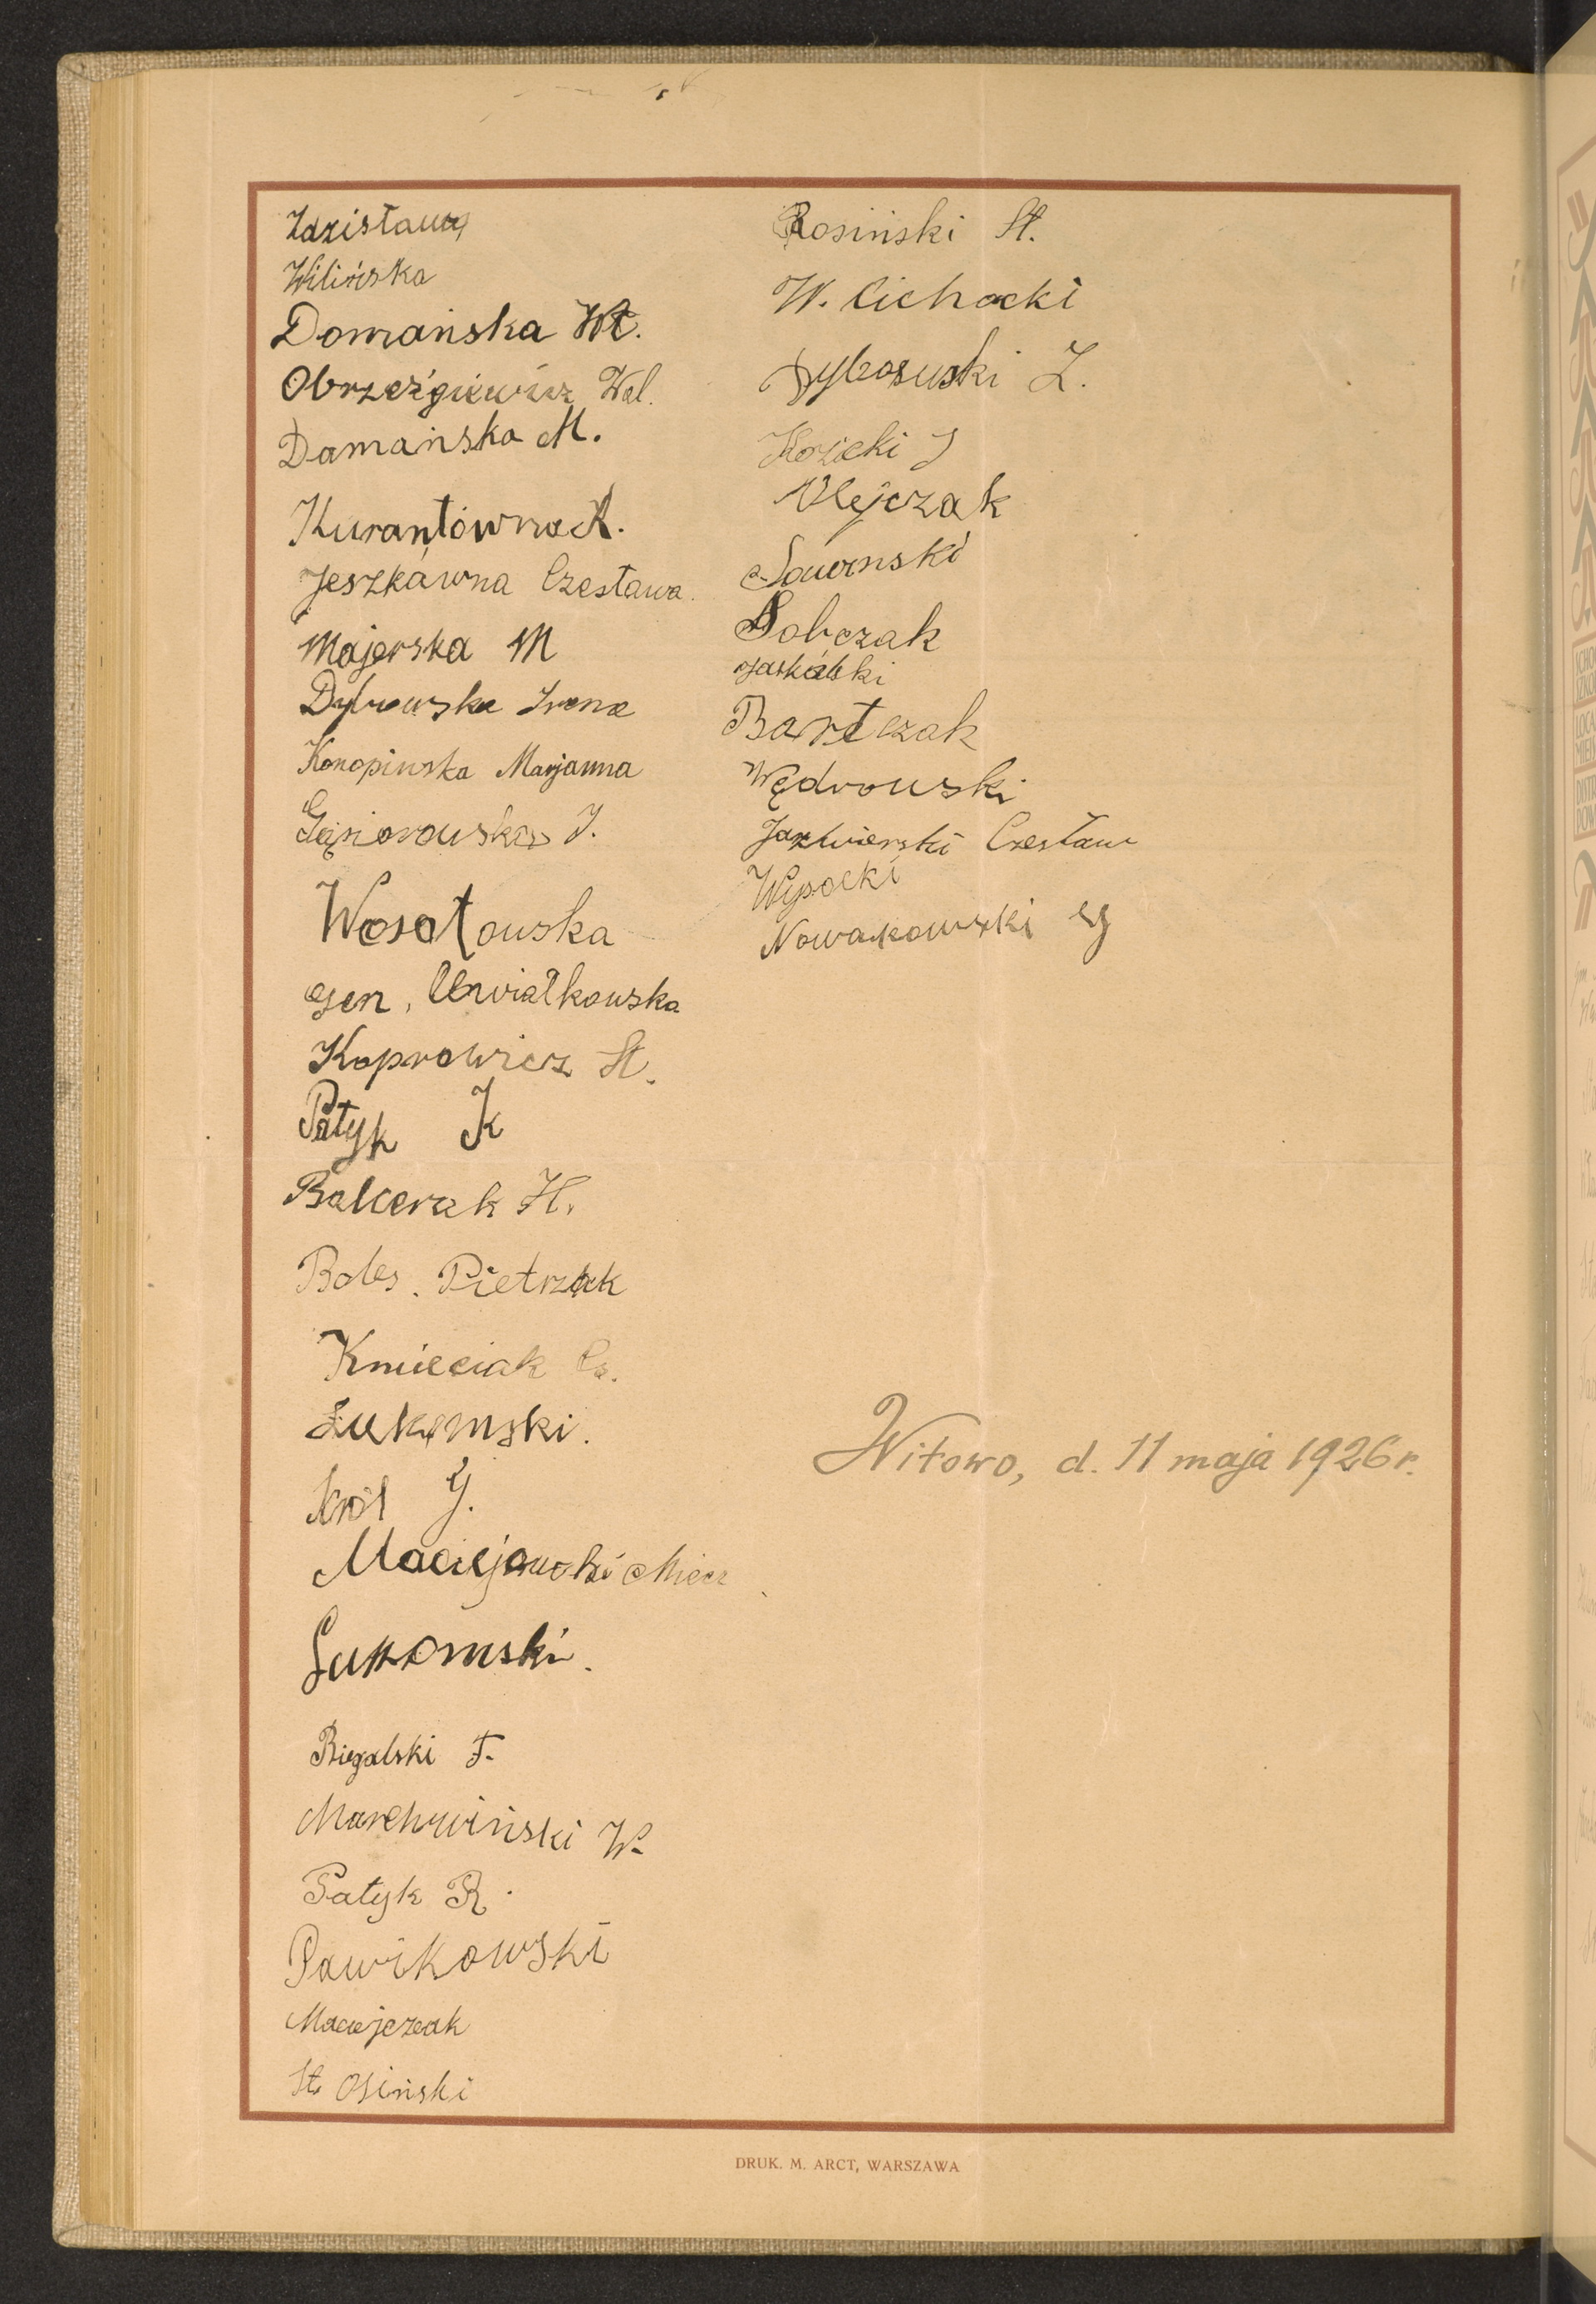 Zdzisława
Wilińska
Domańska Wł.
Obrzeźgiewicz Wal.
Damańska M.
Kurantówna A.
Jeszkawna Czesława.
Majerska M
Dybrowska Irena
Konopinska Marjanna
Gąsiorowska J.
Wosołowska
Gen. Chwiałkowska
Koprowicz St.
Patyk K
Balcerak H.
Boles. Pietrzak
Kmieciak Cz.
Łukomski.
Król J.
Maciejowski Miecz
Łukomski.
Biegalski F.
Marchwiński W.
Patyk R.
Pawikowski
Maciejczak
St. Osiński
Rosiński St.
W. Cichocki
Z.
Kozicki J
Olejczak
Sobczak
Jaskólski
Bartczak
Wędrowski
Jaxwierski Czesław
Wysocki
Nowakowski
Witowo, d. 11 maja 1926 r.
DRUK. M. ARCT, WARSZAWA